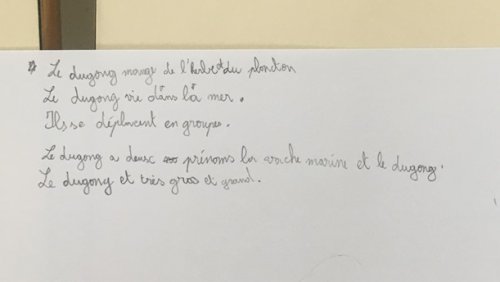 Le dugong mange de l'herbe et du plancton
Le dugong vie dans la mer.
Ils se déplacent en groupes.
Le dugong a deusc prénoms la vache marine et le dugong.
Le dugong et très gros et grand.